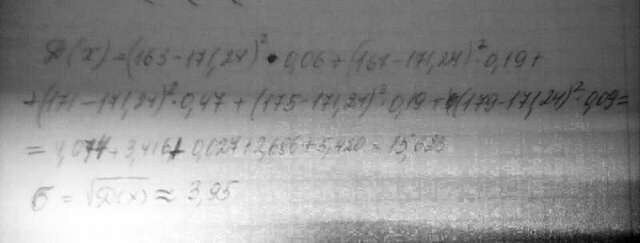 D(x) = (163-171,24)²·0,06+(167-171,24)²·0,19+
+(171-171,24)²·0,47+(175-171,24)²·0,19+(179-171,24)²·0,09=
= 4,074+3,416+0,027+2,686+5,420=15,623
σ = √D(x) ≈ 3,95